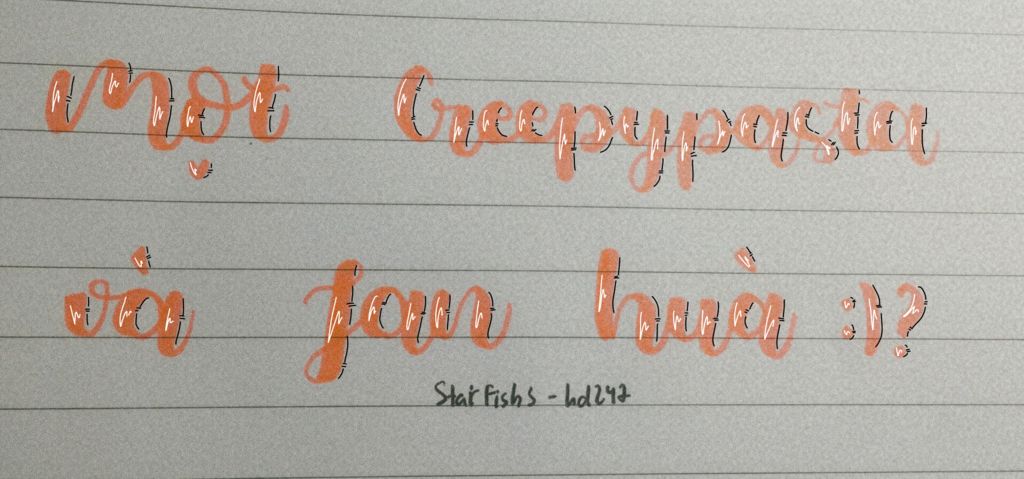 Mọt Creepypasta
và fan huà :)?
StarFishs - hd247